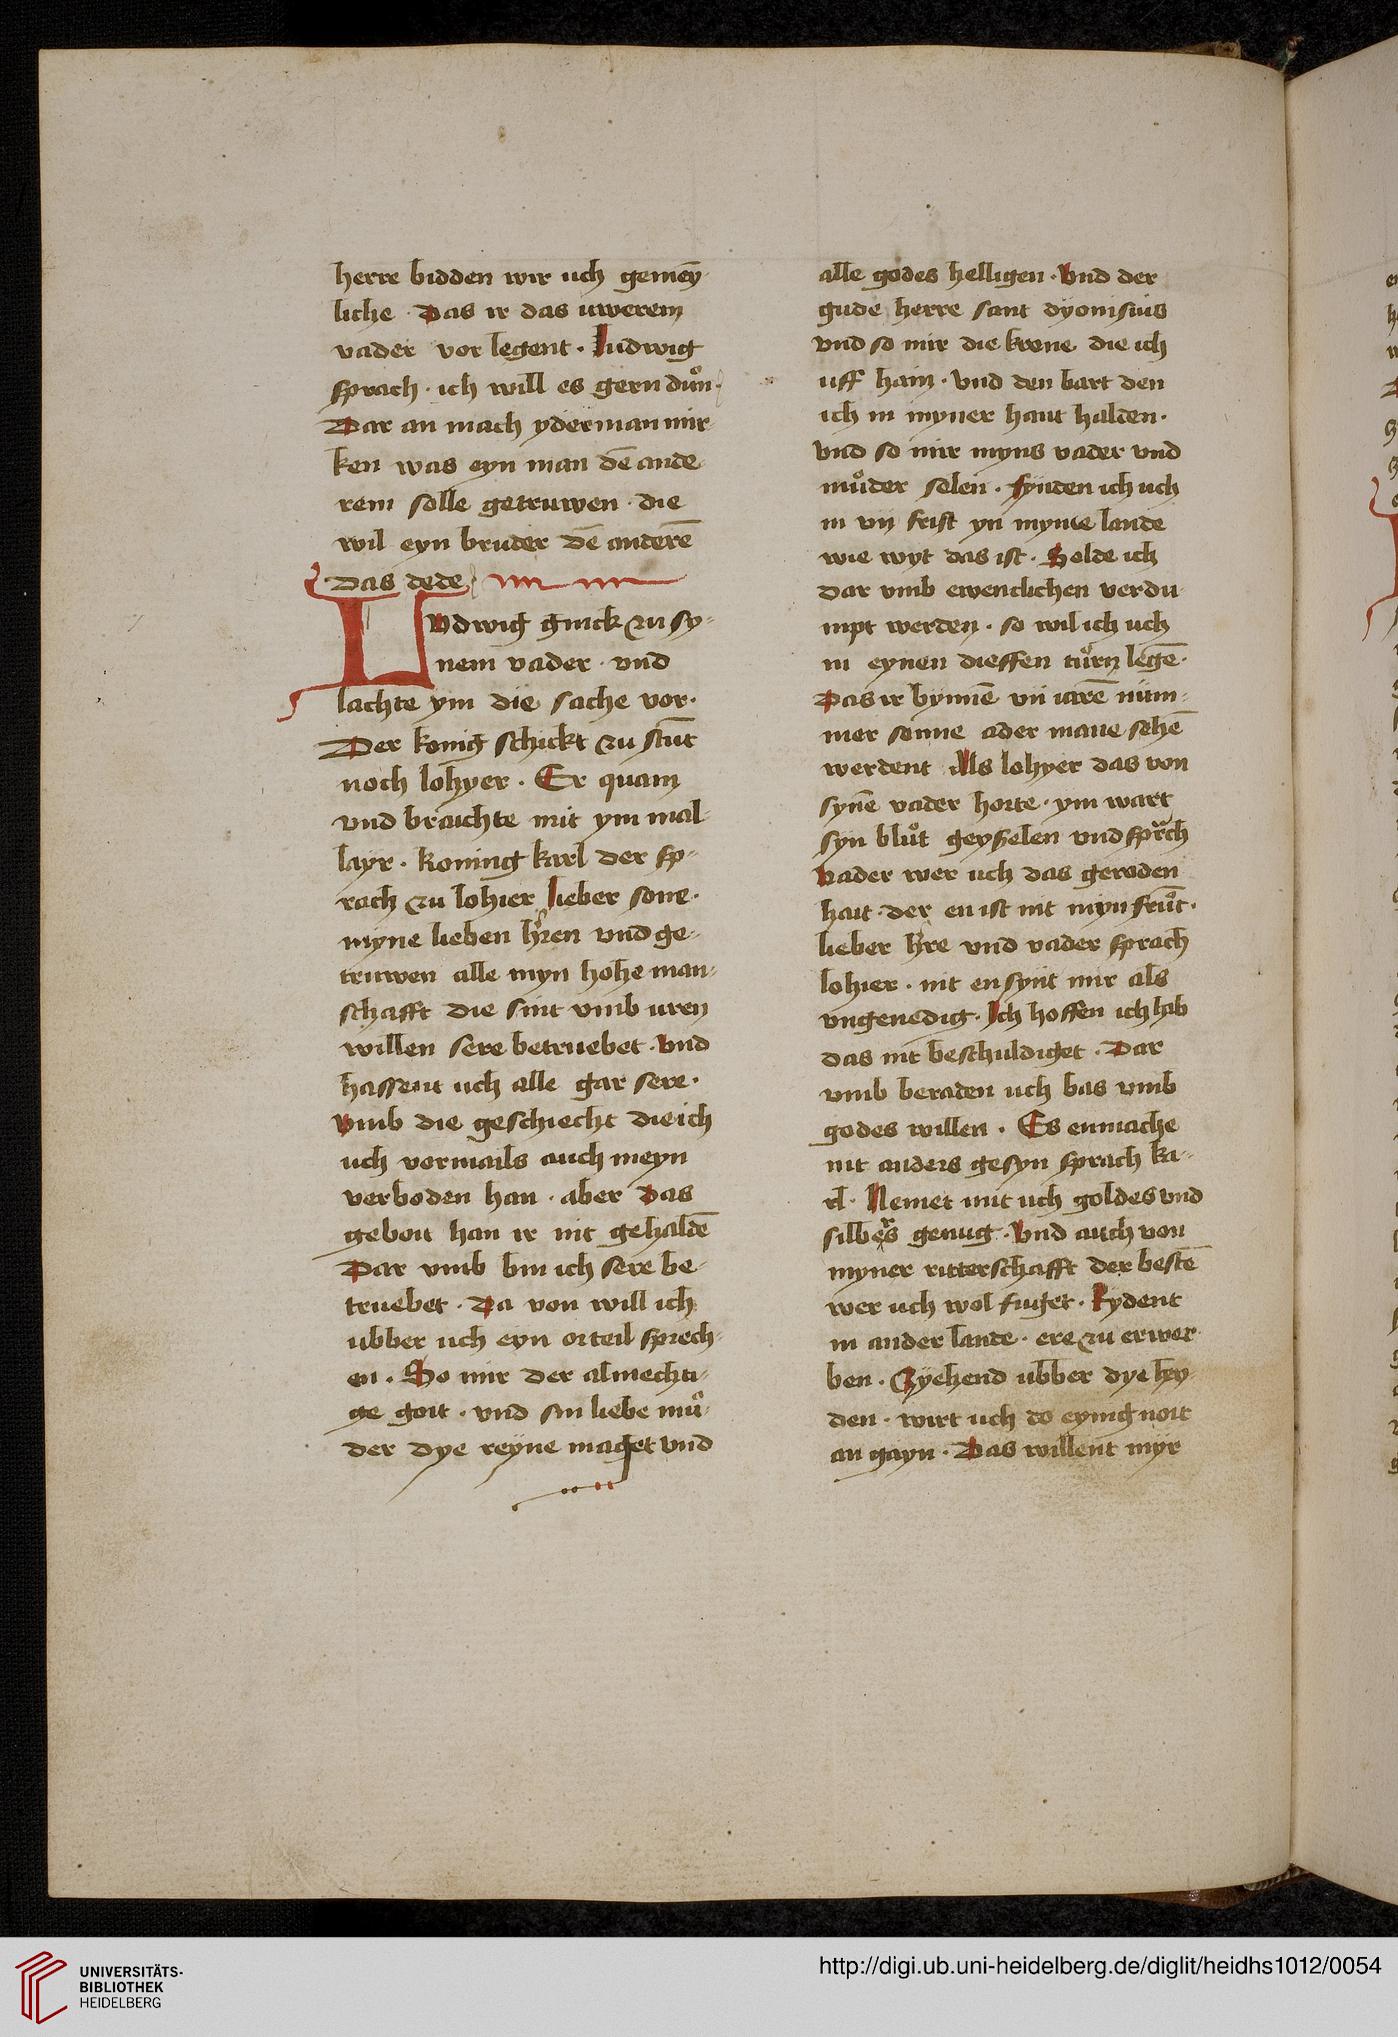 herre bidden wir uch gemey̅
liche · Das ir das uwerem
vader vor legent · Ludwig
sprach · ich will es gern duͦn ·
Dar an mach yderman mir
ken was eyn man de̅ ande
rem solle getruwen · die
wil eyn bruder de̅ andere̅
das dede
LVdwig ginck zu sy-
nem vader · vnd
lachte ym die sache vor ·
Der konig schickt zu stunt
noch lohyer · Er quam
vnd brauchte mit ym mal
layr · koning karl der sp-
rach zu lohier lieber sone ·
myne lieben hren vnd ge-
truwen alle myn hohe man-
schafft die sint vmb uren
willen sere betruebet · Vnd
hassent uch alle gar sere ·
Vmb die geschiecht die ich
uch vormails auch meyn
verboden han · aber Das
gebott han ir nit gehalde̅
Dar vmb bin ich sere be-
truebet · Da von will ich
ubber uch eyn orteil sprech-
en · So mir der almechti-
ge gott · vnd sin liebe muͦ-
der dye reyne maget vnd
alle godes helligen · Vnd der
gude herre sant dyonisius
vnd so mir die krone die ich
uff hain · vnd den bart den
ich in myner hant halden ·
vnd so mir myns vader vnd
muͦder selen · fynden ich uch
in vij frist yn myme lande
wie wyt das ist · Solde ich
dar vmb ewenclichen verdu
mpt werden · so wil ich uch
in eynen dieffen tuͦrn lege̅ ·
Das ir bynne̅ vij iare̅ num-
mer sonne ader mane sehe̅
werdent Als lohyer das von
syne̅ vader horte · ym wart
syn bluͦt geyselen vnd sprach
Vader wer uch das geroden
hait · der en ist nit myn fruͦt ·
lieber hre vnd vader sprach
lohier · nit en synt mir als
vngenedig · Ich hoffen ich hab
das nit beschuldiget · Dar
vmb beraden uch bas vmb
godes willen · Es enmache
nit anders gesyn sprach ka-
rl · Nemet mit uch goldes vnd
silbers genug · Vnd auch von
myner ritterschafft der beste̅
wer uch wol fuget · Rydent
in ander lande · ere zu erwer
ben · Zyehend ubber dye hey-
den · wirt uch do eynig nott
an gayn · Das willent myr
UNIVERSITÄTS-
BIBLIOTHEK
HEIDELBERG
http://digi.ub.uni-heidelberg.de/diglit/heidhs1012/0054